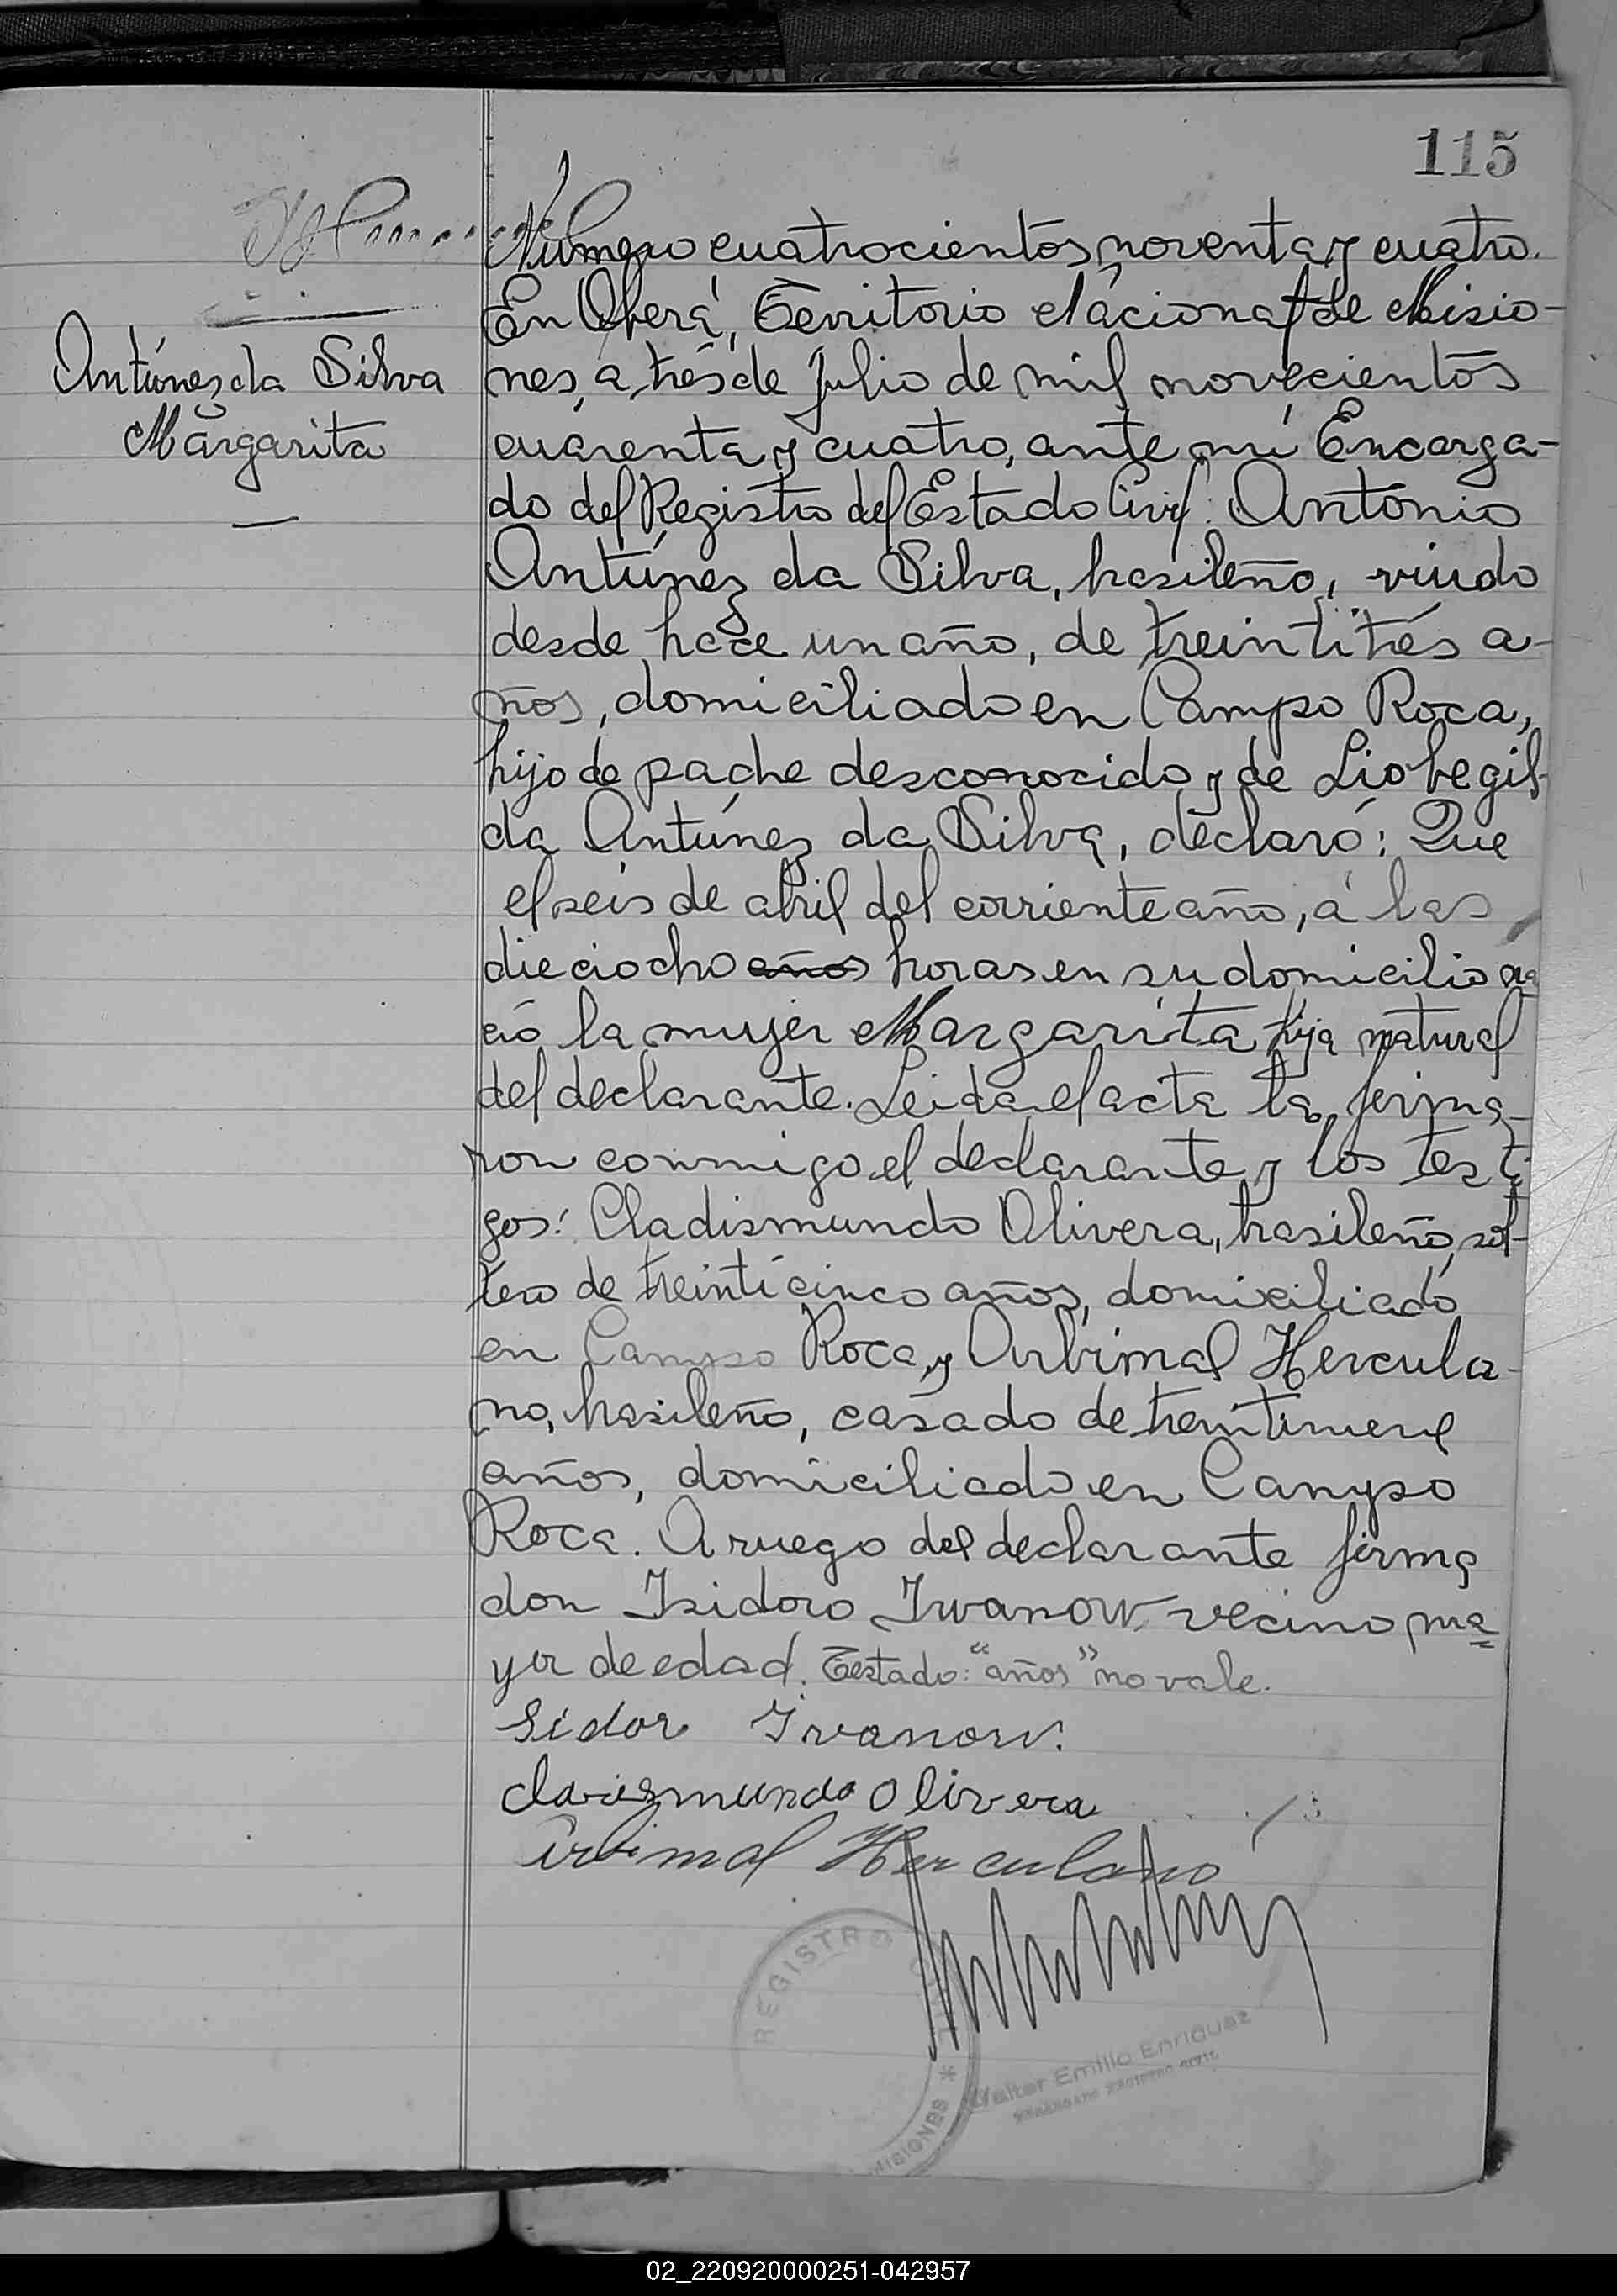 115
Antúnez da Silva
Margarita
Número cuatrocientos noventa y cuatro.
En Oberá, Territorio Nacional de Misio-
nes, a tres de Julio de mil novecientos
cuarenta y cuatro, ante mí Encarga-
do del Registro del Estado Civil: Antonio
Antúnez da Silva, brasileño, viudo
desde hace un año, de treintitrés a-
ños, domiciliado en Campo Roca,
hijo de padre desconocido y de Liobegil-
da Antúnez da Silva, declaró: Que
el seis de abril del corriente año, a las
dieciocho años horas en su domicilio na
ció la mujer Margarita hija natural
del declarante. Leida el acta la firma-
ron conmigo el declarante y los testi-
gos: Cladismundo Olivera, brasileño, sol-
tero de treinticinco años, domiciliado
en Campo Roca, y Orbimal Hercula-
no, brasileño, casado de treintinueve
años, domiciliado en Campo
Roca. A ruego del declarante firma
don Isidoro Iwanow vecino ma
yor de edad. Testado: "años" no vale.
Sidor Ivanow.
Clarismundo Olivera
Orbimal Herculano
REGISTRO CIVIL
* MISIONES
Walter Emilio Enriquez
ENCARGADO REGISTRO CIVIL
02_220920000251-042957